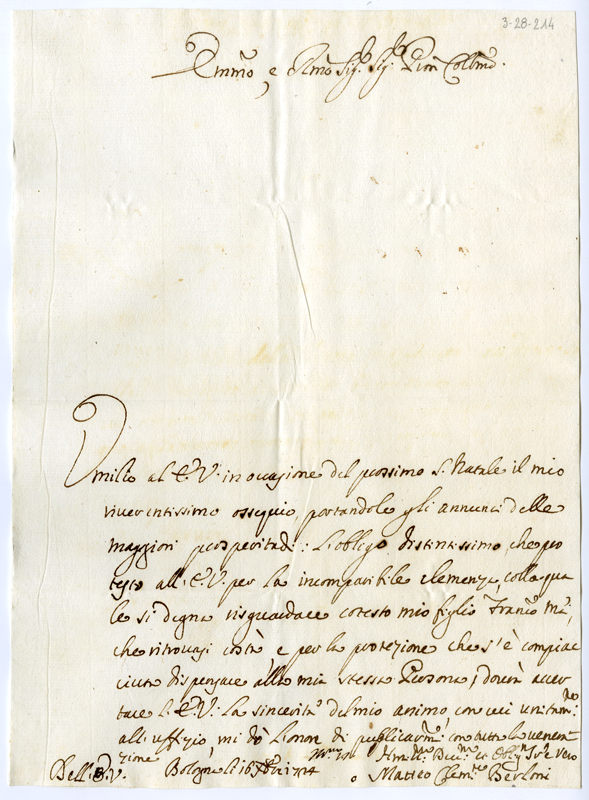 3-28-214
Emmo, e Rmo Sig. Sig. Pron Collmo.
Umilio al E. V. in occasione del prossimo S. Natale il mio
riverentissimo ossequio, portandole gli annunci delle
maggiori prosperitadi: L'obligo distintissimo che pro
testo all. E. V. per la incomparibile clemenza, colla qua
le si degna risguardare cotesto mio figlio Franco Ma,
che ritrovasi costà, e per la protezione che s'è compiac
ciuta dispensare alla mia stessa Persona, dovrà accer
tare L. E. V. la sincerità del mio animo, con cui unitamte
all'uffizio, mi dò L'onor di publicarmi con tutta la venera
zione
Dell. E. V. Bologna li 16 Xbri 1714
Matteo Clemte Berloni